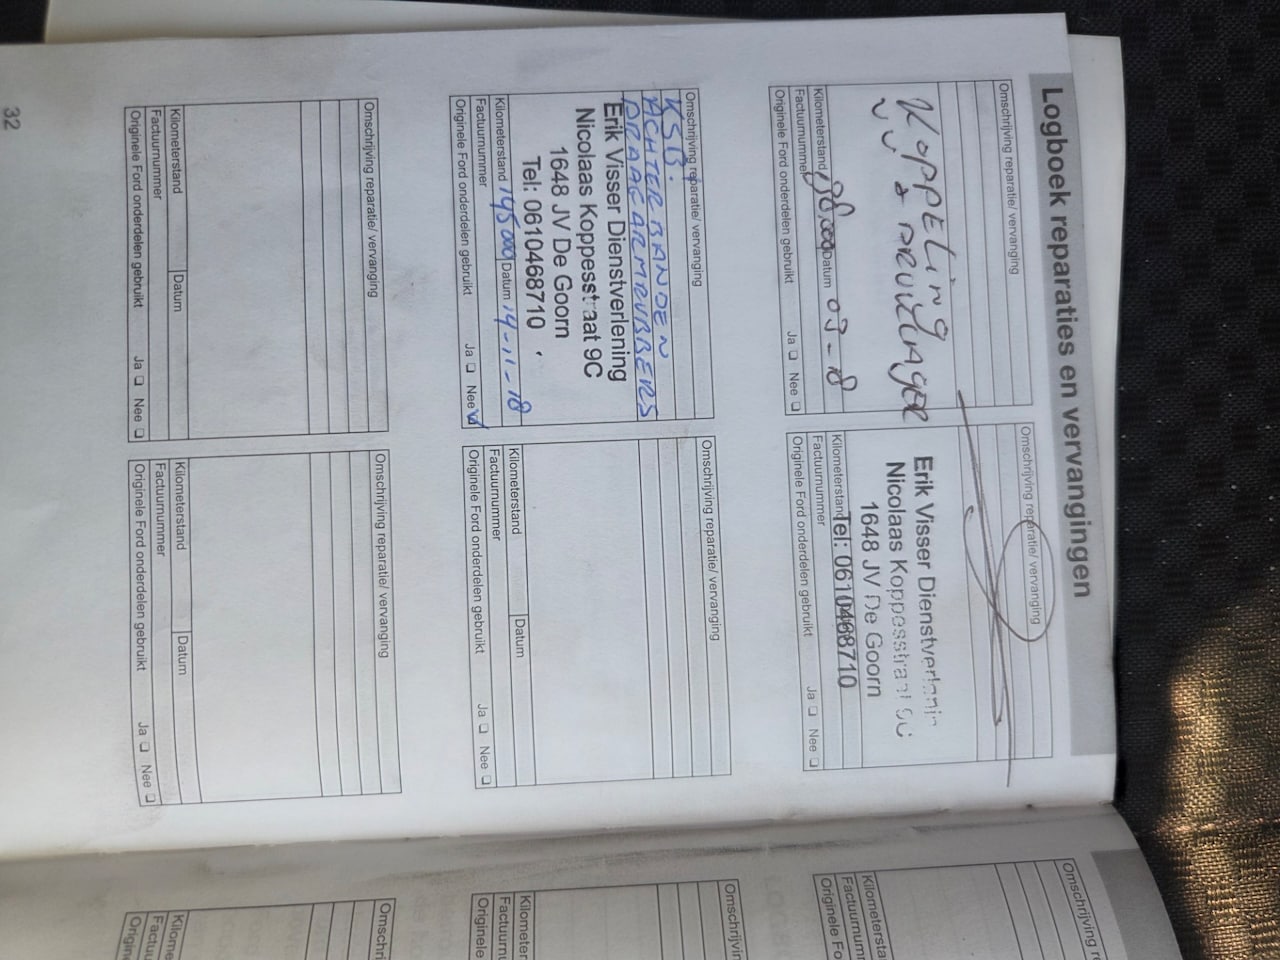 Logboek reparaties en vervangingen
Omschrijving reparatie/ vervanging
KOPPELING
& DRUKLAGER
Kilometerstand 198.000 Datum 09-18
Factuurnummer
Originele Ford onderdelen gebruikt Ja ❑ Nee ❑
Omschrijving reparatie/ vervanging
Erik Visser Dienstverlenin
Nicolaas Koppesstraat 9C
1648 JV De Goorn
Tel: 0610468710
Kilometerstand
Factuurnummer
Originele Ford onderdelen gebruikt Ja ❑ Nee ❑
Omschrijving reparatie/ vervanging
KSB.
ACHTERBANDEN
DRAAGARMRUBBERS
Erik Visser Dienstverlening
Nicolaas Koppesstraat 9C
1648 JV De Goorn
Tel: 0610468710
Kilometerstand 195000 Datum 19-11-18
Factuurnummer
Originele Ford onderdelen gebruikt Ja ❑ Nee ☑
Omschrijving reparatie/ vervanging
Kilometerstand Datum
Factuurnummer
Originele Ford onderdelen gebruikt Ja ❑ Nee ❑
Omschrijving reparatie/ vervanging
Kilometerstand Datum
Factuurnummer
Originele Ford onderdelen gebruikt Ja ❑ Nee ❑
Omschrijving reparatie/ vervanging
Kilometerstand Datum
Factuurnummer
Originele Ford onderdelen gebruikt Ja ❑ Nee ❑
32
Omschrijving re
Kilometersta
Factuurnumm
Originele Fo
Omschrijvin
Kilometer
Factuurn
Originele
Omschri
Kilome
Factuu
Origin